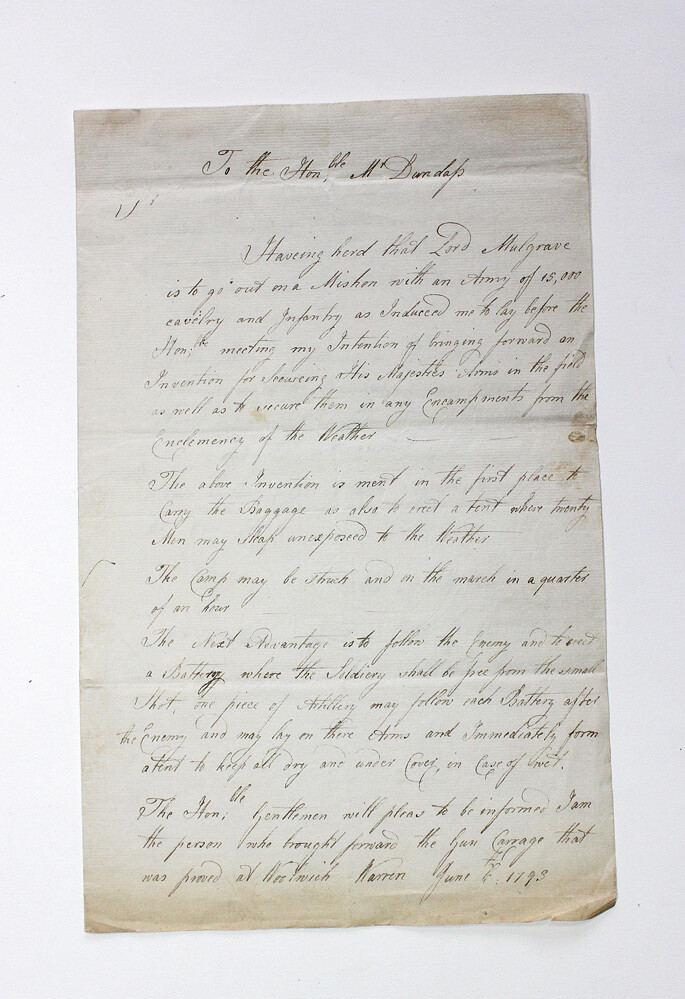 To the Hon,ble Mr Dundass
Haveing herd that Lord Mulgrave
is to go out on a Mishon with an Army of 15,000
cavelry and Infantry as Induced me to lay before the
Hon,ble meeting my Intention of bringing forward an
Invention for Secureing His Majesties Arms in the field
as well as to secure them in any Encampments from the
Enclemency of the Weather
The above Invention is ment in the first place to
Carry the Baggage as also to erect a tent where twenty
Men may sleap unexposeed to the Weather
The Camp may be struck and on the march in a quarter
of an hour
The Next Advantage is to follow the Enemy and to
a Battery where the Soldiery shall be free from the small
Shot, one piece of Artillery may follow each Battery after
the Enemy and may lay on there Arms and Immediately form
a tent to keep all dry and under Cover, in Case of wet.
The Hon,ble Gentlemen will pleas to be informed I am
the person who brought forward the Gun Carrage that
was proved at Woolwich Warren June 1793